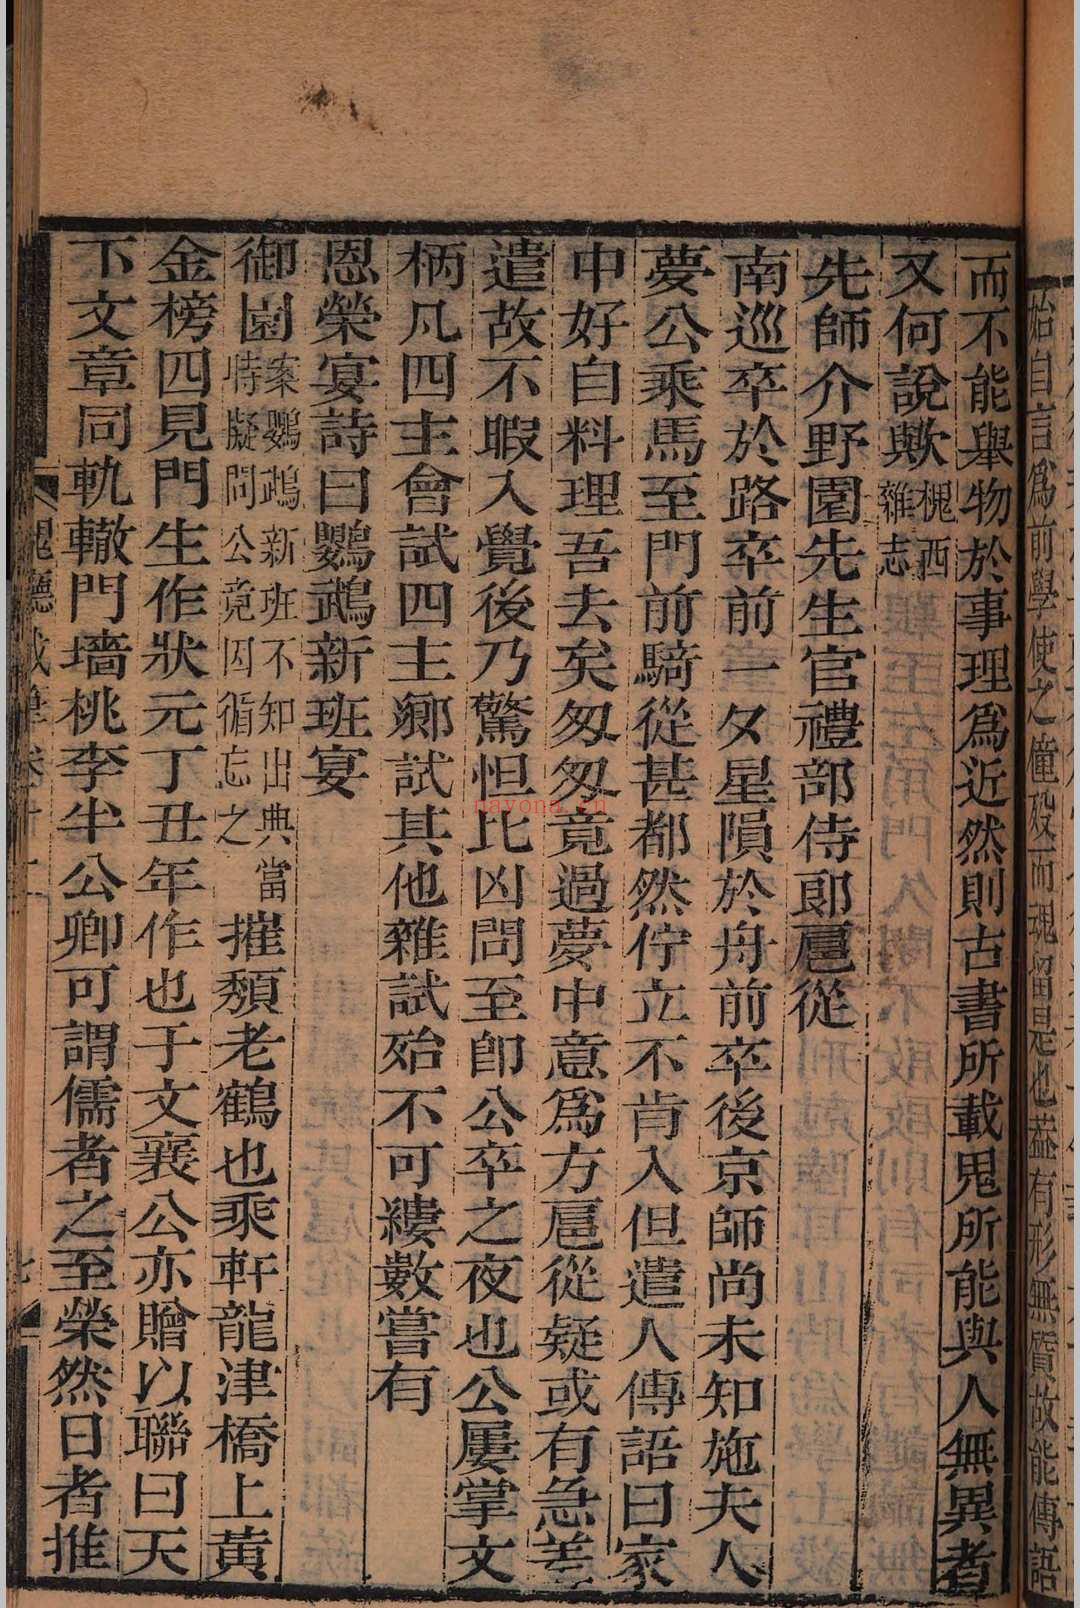 始自言爲前學使之僮歿而魂留是也蓋有形無質故能傳語
而不能舉物於事理爲近然則古書所載鬼所能與人無異者
又何說歟槐西雜志
先師介野園先生官禮部侍郞扈從
南巡卒於路卒前一夕星隕於舟前卒後京師尚未知施夫人
夢公乘馬至門前騎從甚都然佇立不肯入但遣人傳語曰家
中好自料理吾去矣匆匆竟過夢中意爲方扈從疑或有急差
遣故不暇入覺後乃驚怛比凶問至卽公卒之夜也公屢掌文
柄凡四主會試四主鄉試其他雜試殆不可縷數嘗有
恩榮宴詩曰鸚鵡新班宴
御園案鸚鵡新班不知出典當時擬問公竟因循忘之摧頹老鶴也乘軒龍津橋上黃
金榜四見門生作狀元丁丑年作也于文襄公亦贈以聯曰天
下文章同軌轍門墻桃李半公卿可謂儒者之至榮然日者推
槐廳載筆 卷十
七
nayona.cn